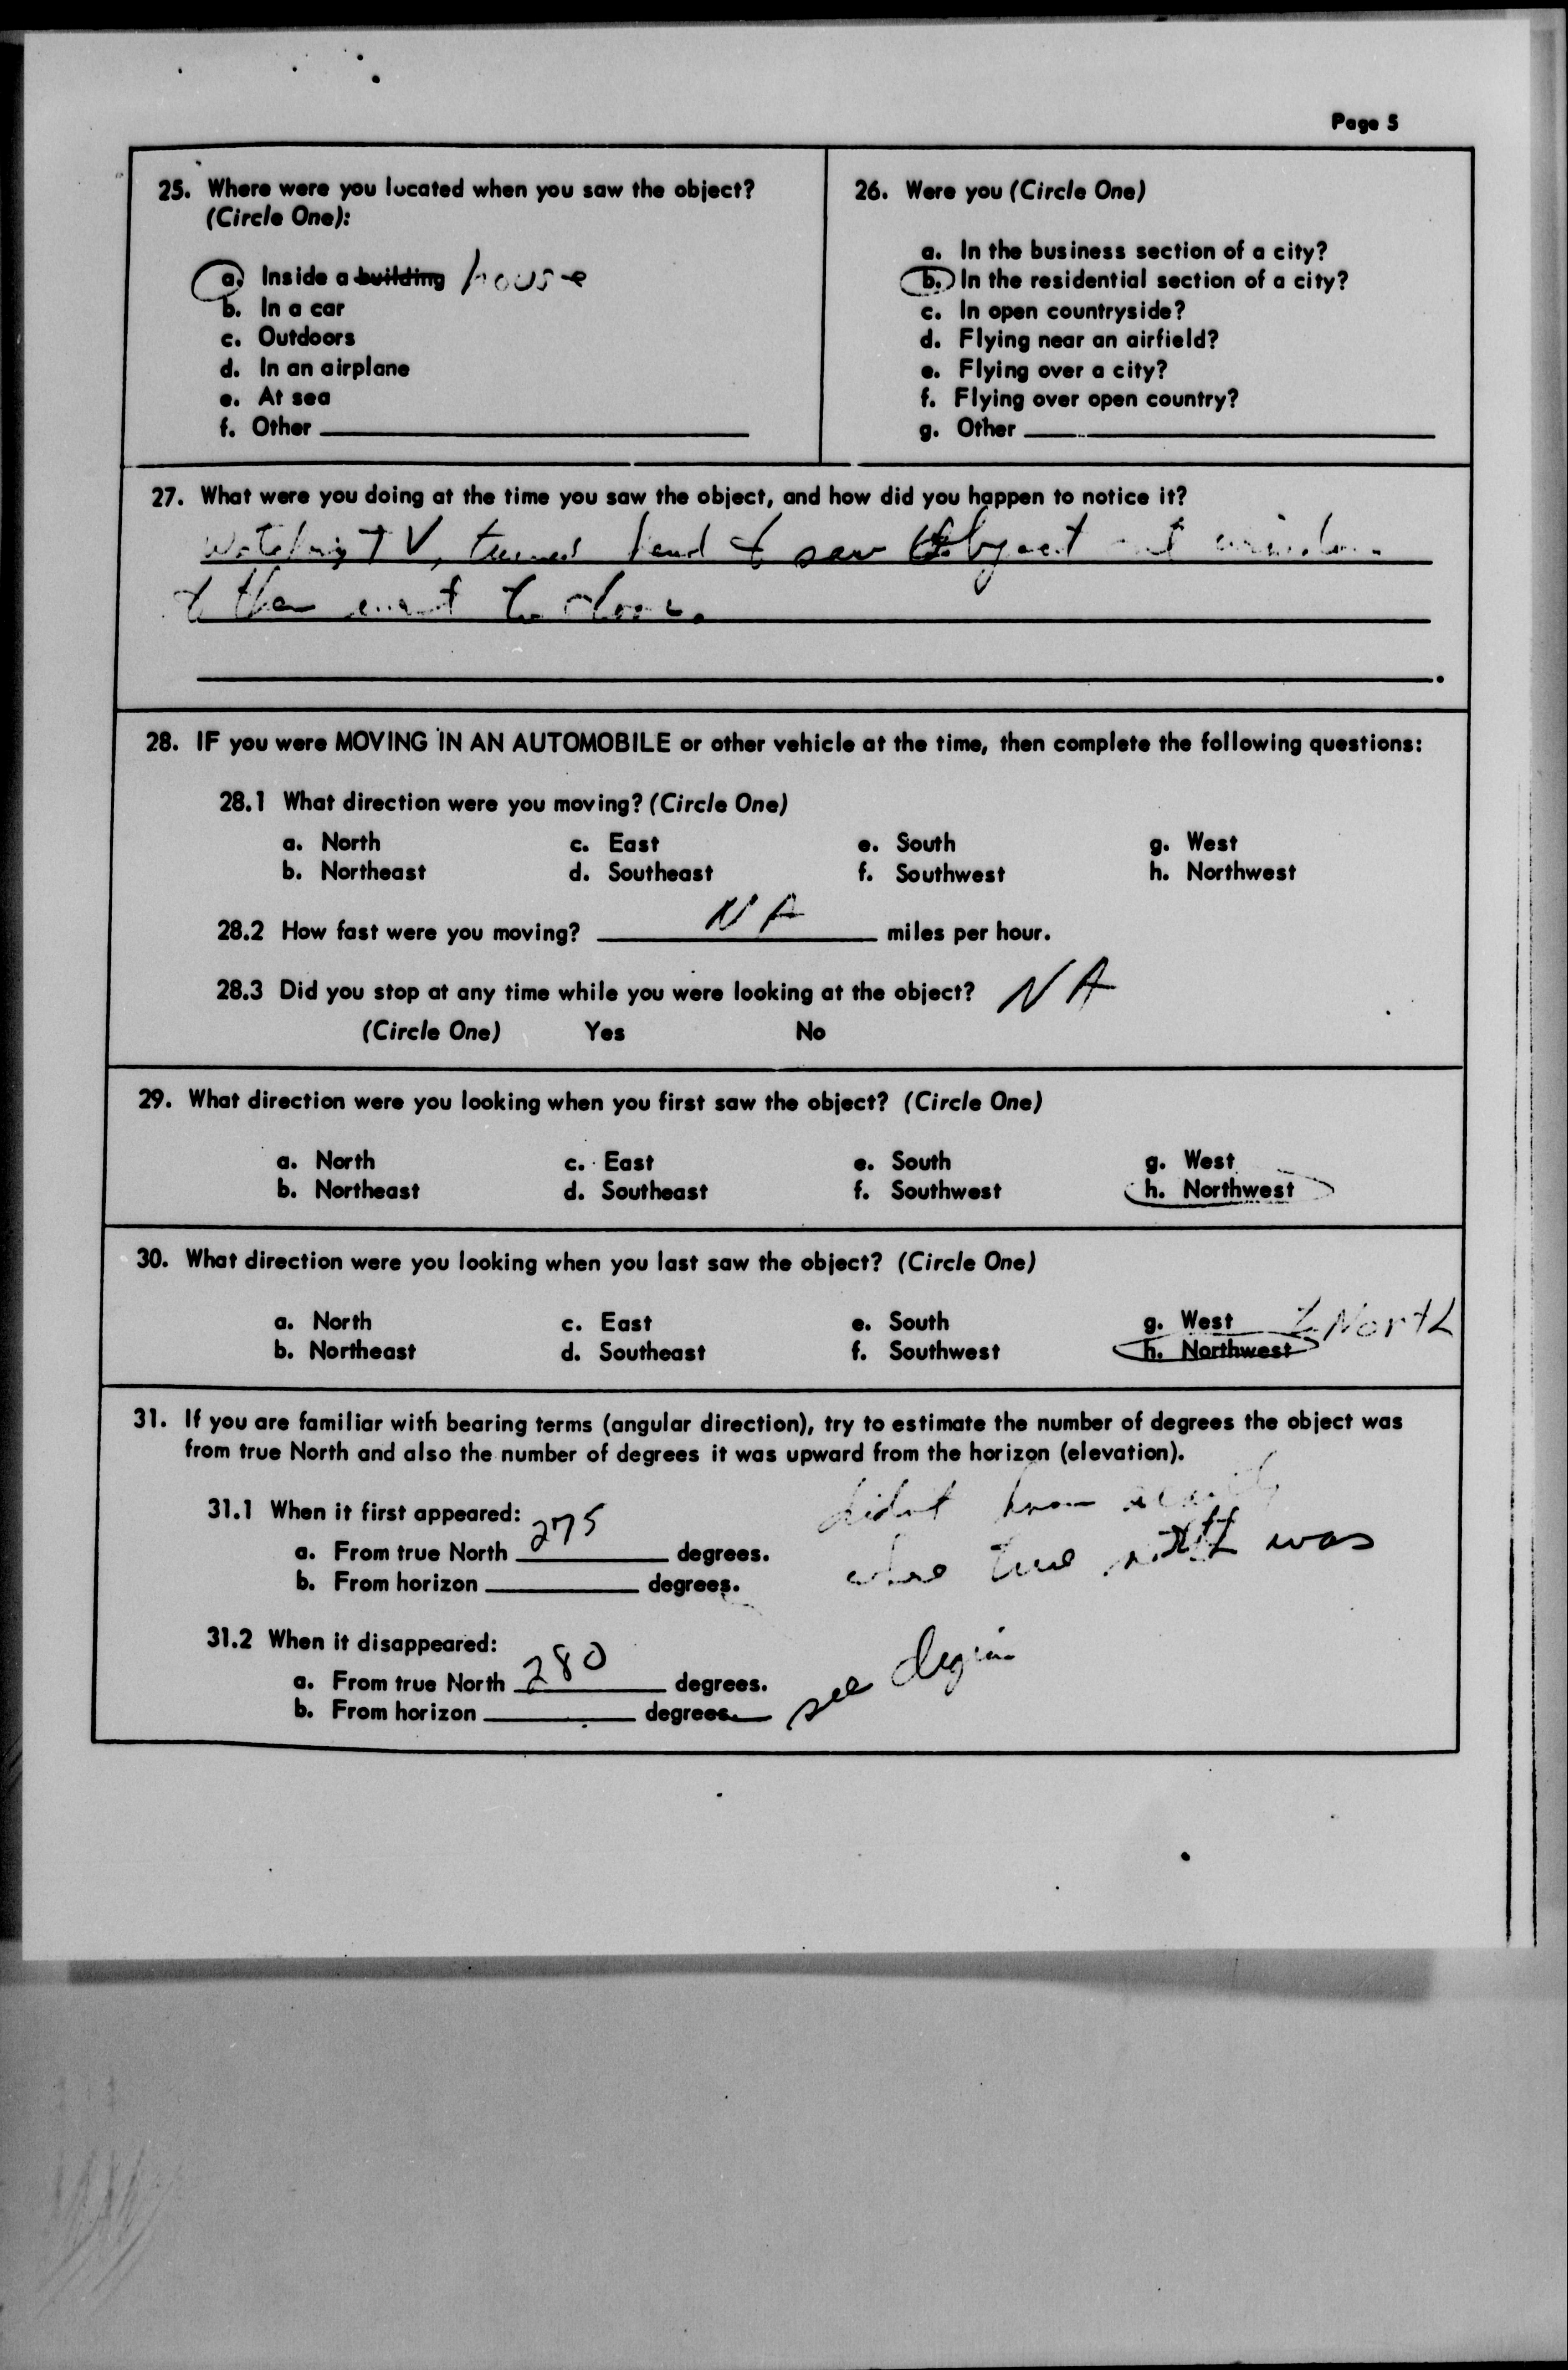 Page 5
25. Where were you located when you saw the object?
(Circle One):
a. Inside a building house
b. In a car
c. Outdoors
d. In an airplane
e. At sea
f. Other
26. Were you (Circle One)
a. In the business section of a city?
b. In the residential section of a city?
c. In open countryside?
d. Flying near an airfield?
e. Flying over a city?
f. Flying over open country?
g. Other
27. What were you doing at the time you saw the object, and how did you happen to notice it?
Watching TV, turned head & saw object out window
& then went to door.
28. IF you were MOVING IN AN AUTOMOBILE or other vehicle at the time, then complete the following questions:
28.1 What direction were you moving? (Circle One)
a. North c. East e. South g. West
b. Northeast d. Southeast f. Southwest h. Northwest
28.2 How fast were you moving? NA miles per hour.
28.3 Did you stop at any time while you were looking at the object? NA
(Circle One) Yes No
29. What direction were you looking when you first saw the object? (Circle One)
a. North c. East e. South g. West
b. Northeast d. Southeast f. Southwest h. Northwest
30. What direction were you looking when you last saw the object? (Circle One)
a. North c. East e. South g. West North
b. Northeast d. Southeast f. Southwest h. Northwest
31. If you are familiar with bearing terms (angular direction), try to estimate the number of degrees the object was
from true North and also the number of degrees it was upward from the horizon (elevation).
didnt know
31.1 When it first appeared:
a. From true North 275 degrees. where true north was
b. From horizon degrees.
31.2 When it disappeared:
a. From true North 280 degrees.
b. From horizon degrees. see